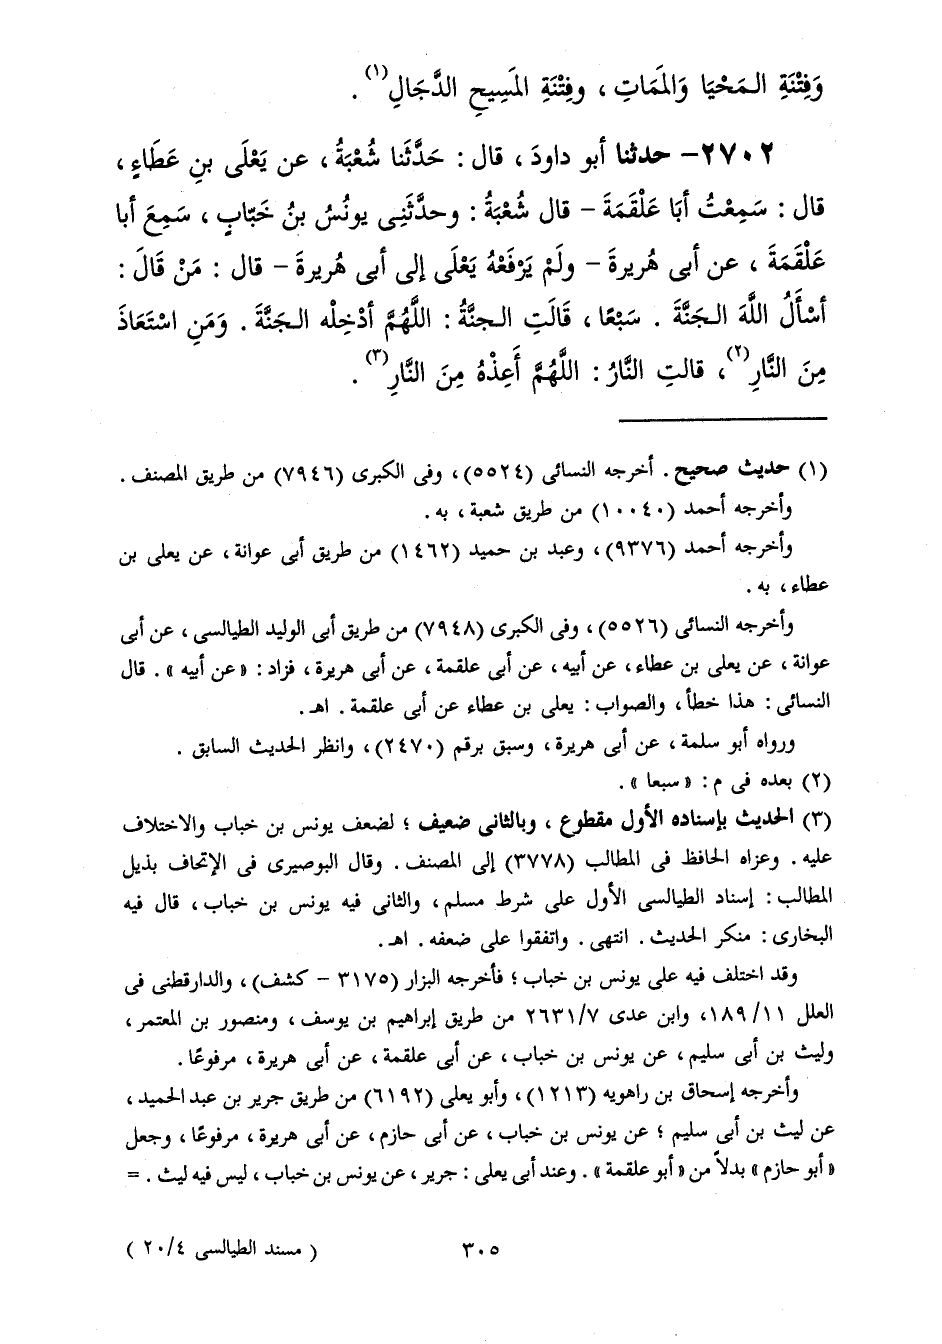 وَفِتْنَةِ المَحْيَا وَالمَمَاتِ ، وفِتْنَةِ المَسِيحِ الدَّجَالِ(١) .
٢٧٠٢- حدثنا أبو داودَ ، قال : حَدَّثَنا شُعْبَةُ ، عن يَعْلَى بنِ عَطَاءٍ ،
قال : سَمِعْتُ أبَا عَلْقَمَةَ - قال شُعْبَةُ : وحدَّثَنِى يونُسُ بنُ خَبّابٍ ، سَمِعَ أبا
عَلْقَمَةَ ، عن أبى هُريرةَ - ولَمْ يَرْفَعْهُ يَعْلَى إلى أبى هُريرةَ - قال : مَنْ قَالَ :
أسْأَلُ اللَّهَ الجَنَّةَ . سَبْعًا ، قَالَتِ الجنَّةُ : اللَّهُمَّ أدْخِلْه الجَنَّةَ . وَمَنِ اسْتَعَاذَ
مِنَ النَّارِ(٢)، قالتِ النَّارُ : اللَّهُمَّ أَعِذْهُ مِنَ النَّارِ(٣) .
(١) حديث صحيح . أخرجه النسائى (٥٥٢٤)، وفى الكبرى (٧٩٤٦) من طريق المصنف .
وأخرجه أحمد (١٠٠٤٠) من طريق شعبة ، به .
وأخرجه أحمد (٩٣٧٦)، وعبد بن حميد (١٤٦٢) من طريق أبى عوانة ، عن يعلى بن
عطاء ، به .
وأخرجه النسائى (٥٥٢٦)، وفى الكبرى (٧٩٤٨) من طريق أبى الوليد الطيالسى ، عن أبى
عوانة ، عن يعلى بن عطاء ، عن أبيه ، عن أبى علقمة ، عن أبى هريرة ، فزاد : « عن أبيه » . قال
النسائى : هذا خطأ ، والصواب : يعلى بن عطاء عن أبى علقمة . اهـ .
ورواه أبو سلمة ، عن أبى هريرة ، وسبق برقم (٢٤٧٠)، وانظر الحديث السابق .
(٢) بعده فى م : « سبعا » .
(٣) الحديث بإسناده الأول مقطوع ، وبالثانى ضعيف ؛ لضعف يونس بن خباب والاختلاف
عليه . وعزاه الحافظ فى المطالب (٣٧٧٨) إلى المصنف . وقال البوصيرى فى الإتحاف بذيل
المطالب : إسناد الطيالسى الأول على شرط مسلم ، والثانى فيه يونس بن خباب ، قال فيه
البخارى : منكر الحديث . انتهى . واتفقوا على ضعفه . اهـ .
وقد اختلف فيه على يونس بن خباب ؛ فأخرجه البزار (٣١٧٥ - كشف) ، والدارقطنى فى
العلل ١٨٩/١١، وابن عدى ٢٦٣١/٧ من طريق إبراهيم بن يوسف ، ومنصور بن المعتمر ،
وليث بن أبى سليم ، عن يونس بن خباب ، عن أبى علقمة ، عن أبى هريرة ، مرفوعًا .
وأخرجه إسحاق بن راهويه (١٢١٣)، وأبو يعلى (٦١٩٢) من طريق جرير بن عبد الحميد ،
عن ليث بن أبى سليم ؛ عن يونس بن خباب ، عن أبى حازم ، عن أبى هريرة ، مرفوعًا ، وجعل
« أبو حازم » بدلاً من « أبو علقمة » . وعند أبى يعلى : جرير ، عن يونس بن خباب ، ليس فيه ليث . =
٣٠٥
( مسند الطيالسى ٢٠/٤ )